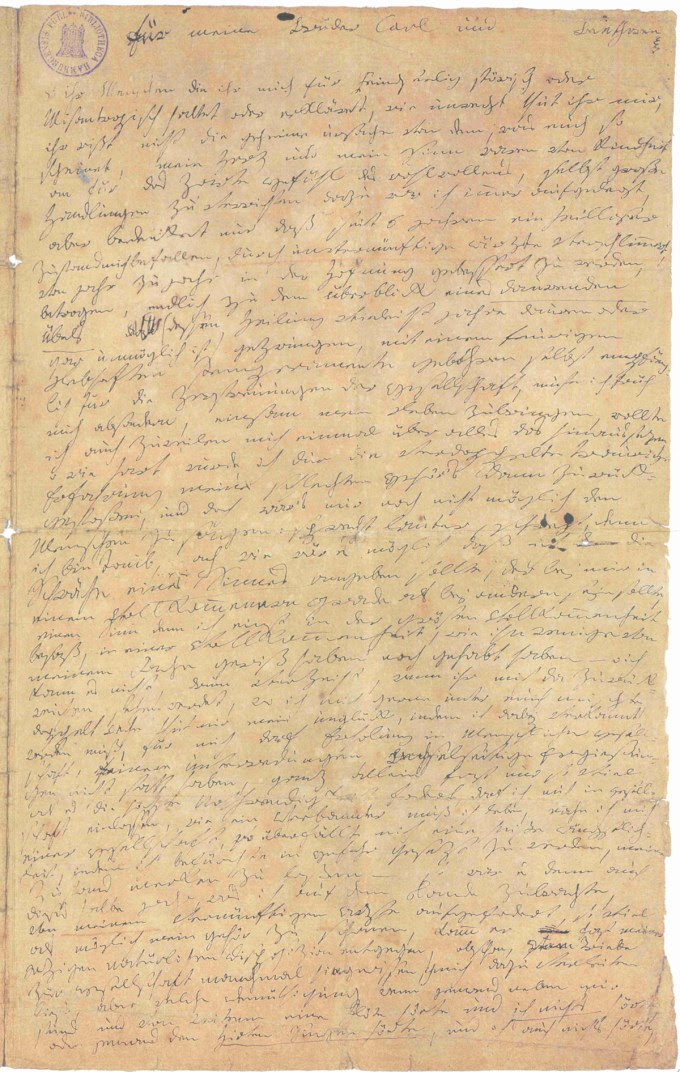 PUBL. BIBLIOTHECA HAMBURGENSIS
für meine Brüder Carl und Beethowen
o ihr Menschen die ihr mich für Feindseelig störisch oder
Misantropisch haltet oder erkläret, wie unrecht thut ihr mir,
ihr wißt nicht die geheime ursache von dem, was euch so
scheinet, mein Herz und mein Sinn waren von Kindheit
an für das Zarte Gefühl des wohlwollens, selbst große
Handlungen zu verrichten dazu war ich imer aufgelegt,
aber bedenket nur daß seit 6 jahren ein heilloser
Zustand mich befallen, durch unvernünftige ärzte verschlimmert,
von jahr zu jahr in der Hofnung gebessert zu werden,
betrogen, endlich zu dem überblick eines daurenden
übels (dessen Heilung vieleicht jahre dauren oder
gar unmöglich ist) gezwungen, mit einem feurigen
Lebhaften Temperamente gebohren selbst empfäng-
lich für die Zerstreuungen der Gesellschaft, muste ich früh
mich absondern, einsam mein Leben zubringen, wollte
ich auch zuweilen mich einmal über alles das hinaussezen,
o wie hart wurde ich dur die verdoppelte traurige
Erfahrung meines schlechten Gehör's dann zurück-
gestoßen, und doch war's mir noch nicht möglich den
Menschen zu sagen: sprecht lauter, schreyt, denn
ich bin Taub, ach wie wär es möglich daß ich die
Schwäche eines Sinnes angeben sollte, der bey mir in
einem Vollkommenern grade als bey andern seyn sollte,
einen Sinn denn ich einst in der grösten Vollkommenheit
besaß, in einer Vollkommenheit, wie ihn wenige von
meinem Fache gewiß haben noch gehabt haben – o ich
kann es nicht, drum verzeiht, wenn ihr mich da zurük-
weichen sehen werdet, wo ich mich gerne unter euch mischte,
doppelt wehe thut mir mein unglück, indem ich dabey verkannt
werden muß, für mich darf Erholung in Menschlicher Gesell-
schaft, feinere unterredungen, Wechselseitige Ergießun-
gen nicht statt haben, ganz allein fast nur so viel
als es die höchste Nothwendigkeit fodert, darf ich mich in gesell-
schaft einlassen, wie ein Verbannter muß ich leben, nahe ich mich
einer Gesellschaft, so überfällt mich eine heiße ängstlich-
keit, indem ich befürchte in Gefahr gesezt zu werden, meinen
Zustand merken zu laßen – so war es denn auch
dieses halbe jahr, was ich auf dem Lande zubrachte,
von meinem Vernünftigen Arzte aufgefodert, so viel
als möglich mein Gehör zu schonen, kamm er fast meiner
jezigen natürlichen Disposizion entgegen, obschon, Vom Triebe
zur Gesellschaft manchmal hingerissen, ich mich dazu verleiten
ließ, aber welche Demüthigung wenn jemand neben mir
stund und von weitem eine Flöte hörte und ich nichts hörte,
oder jemand den Hirten Singen hörte, und ich auch nichts hörte,